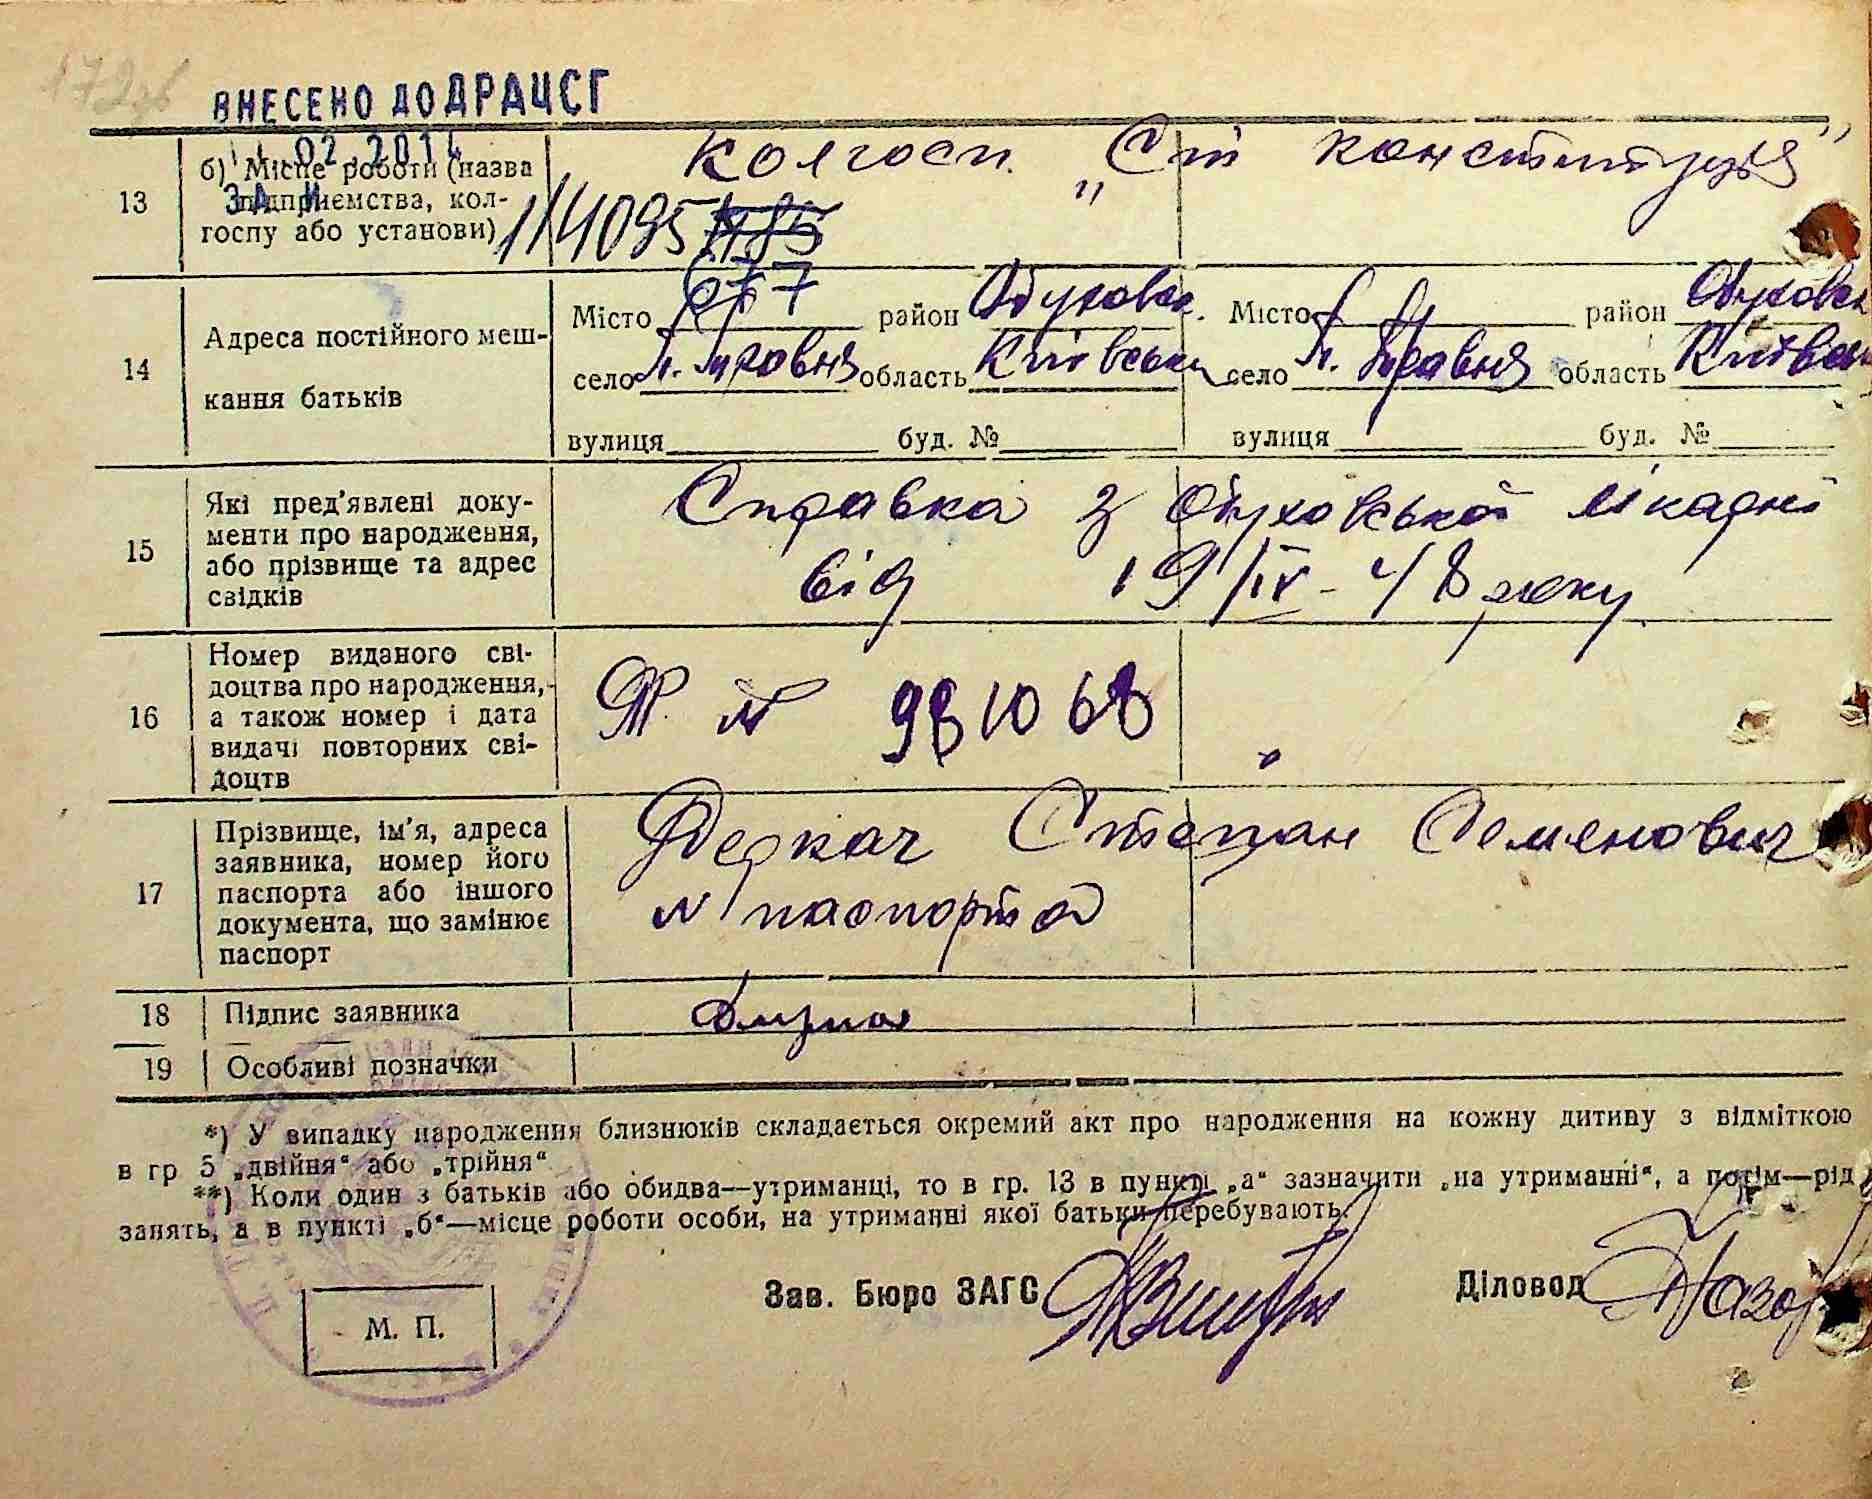 172 зв
ВНЕСЕНО ДО ДРАЦСГ
02.2014
ЗА №
114095
677
13
б) Місце роботи (назва
підприємства, кол-
госпу або установи)
Колгосп „Ст конституція"
14
Адреса постійного меш-
кання батьків
Місто район Обуховск. Місто район Обуховск
село П. Травня область Київська село П. Травня область Київськ
вулиця буд. № вулиця буд. №
15
Які пред'явлені доку-
менти про народження,
або прізвище та адрес
свідків
Справка з Обуховської лікарні
від 19/IV-48 року
16
Номер виданого сві-
доцтва про народження,
а також номер і дата
видачі повторних сві-
доцтв
№ 981068
17
Прізвище, ім'я, адреса
заявника, номер його
паспорта або іншого
документа, що замінює
паспорт
Деркач Степан Семенович
№ паспорта
18
Підпис заявника
19
Особливі позначки
*) У випадку народження близнюків складається окремий акт про народження на кожну дитину з відміткою
в гр 5 „двійня“ або „трійня“
**) Коли один з батьків або обидва—утриманці, то в гр. 13 в пункті „а“ зазначити „на утриманні“, а потім—рід
занять, а в пункті „б“—місце роботи особи, на утриманні якої батьки перебувають.
Зав. Бюро ЗАГС Діловод
М. П.